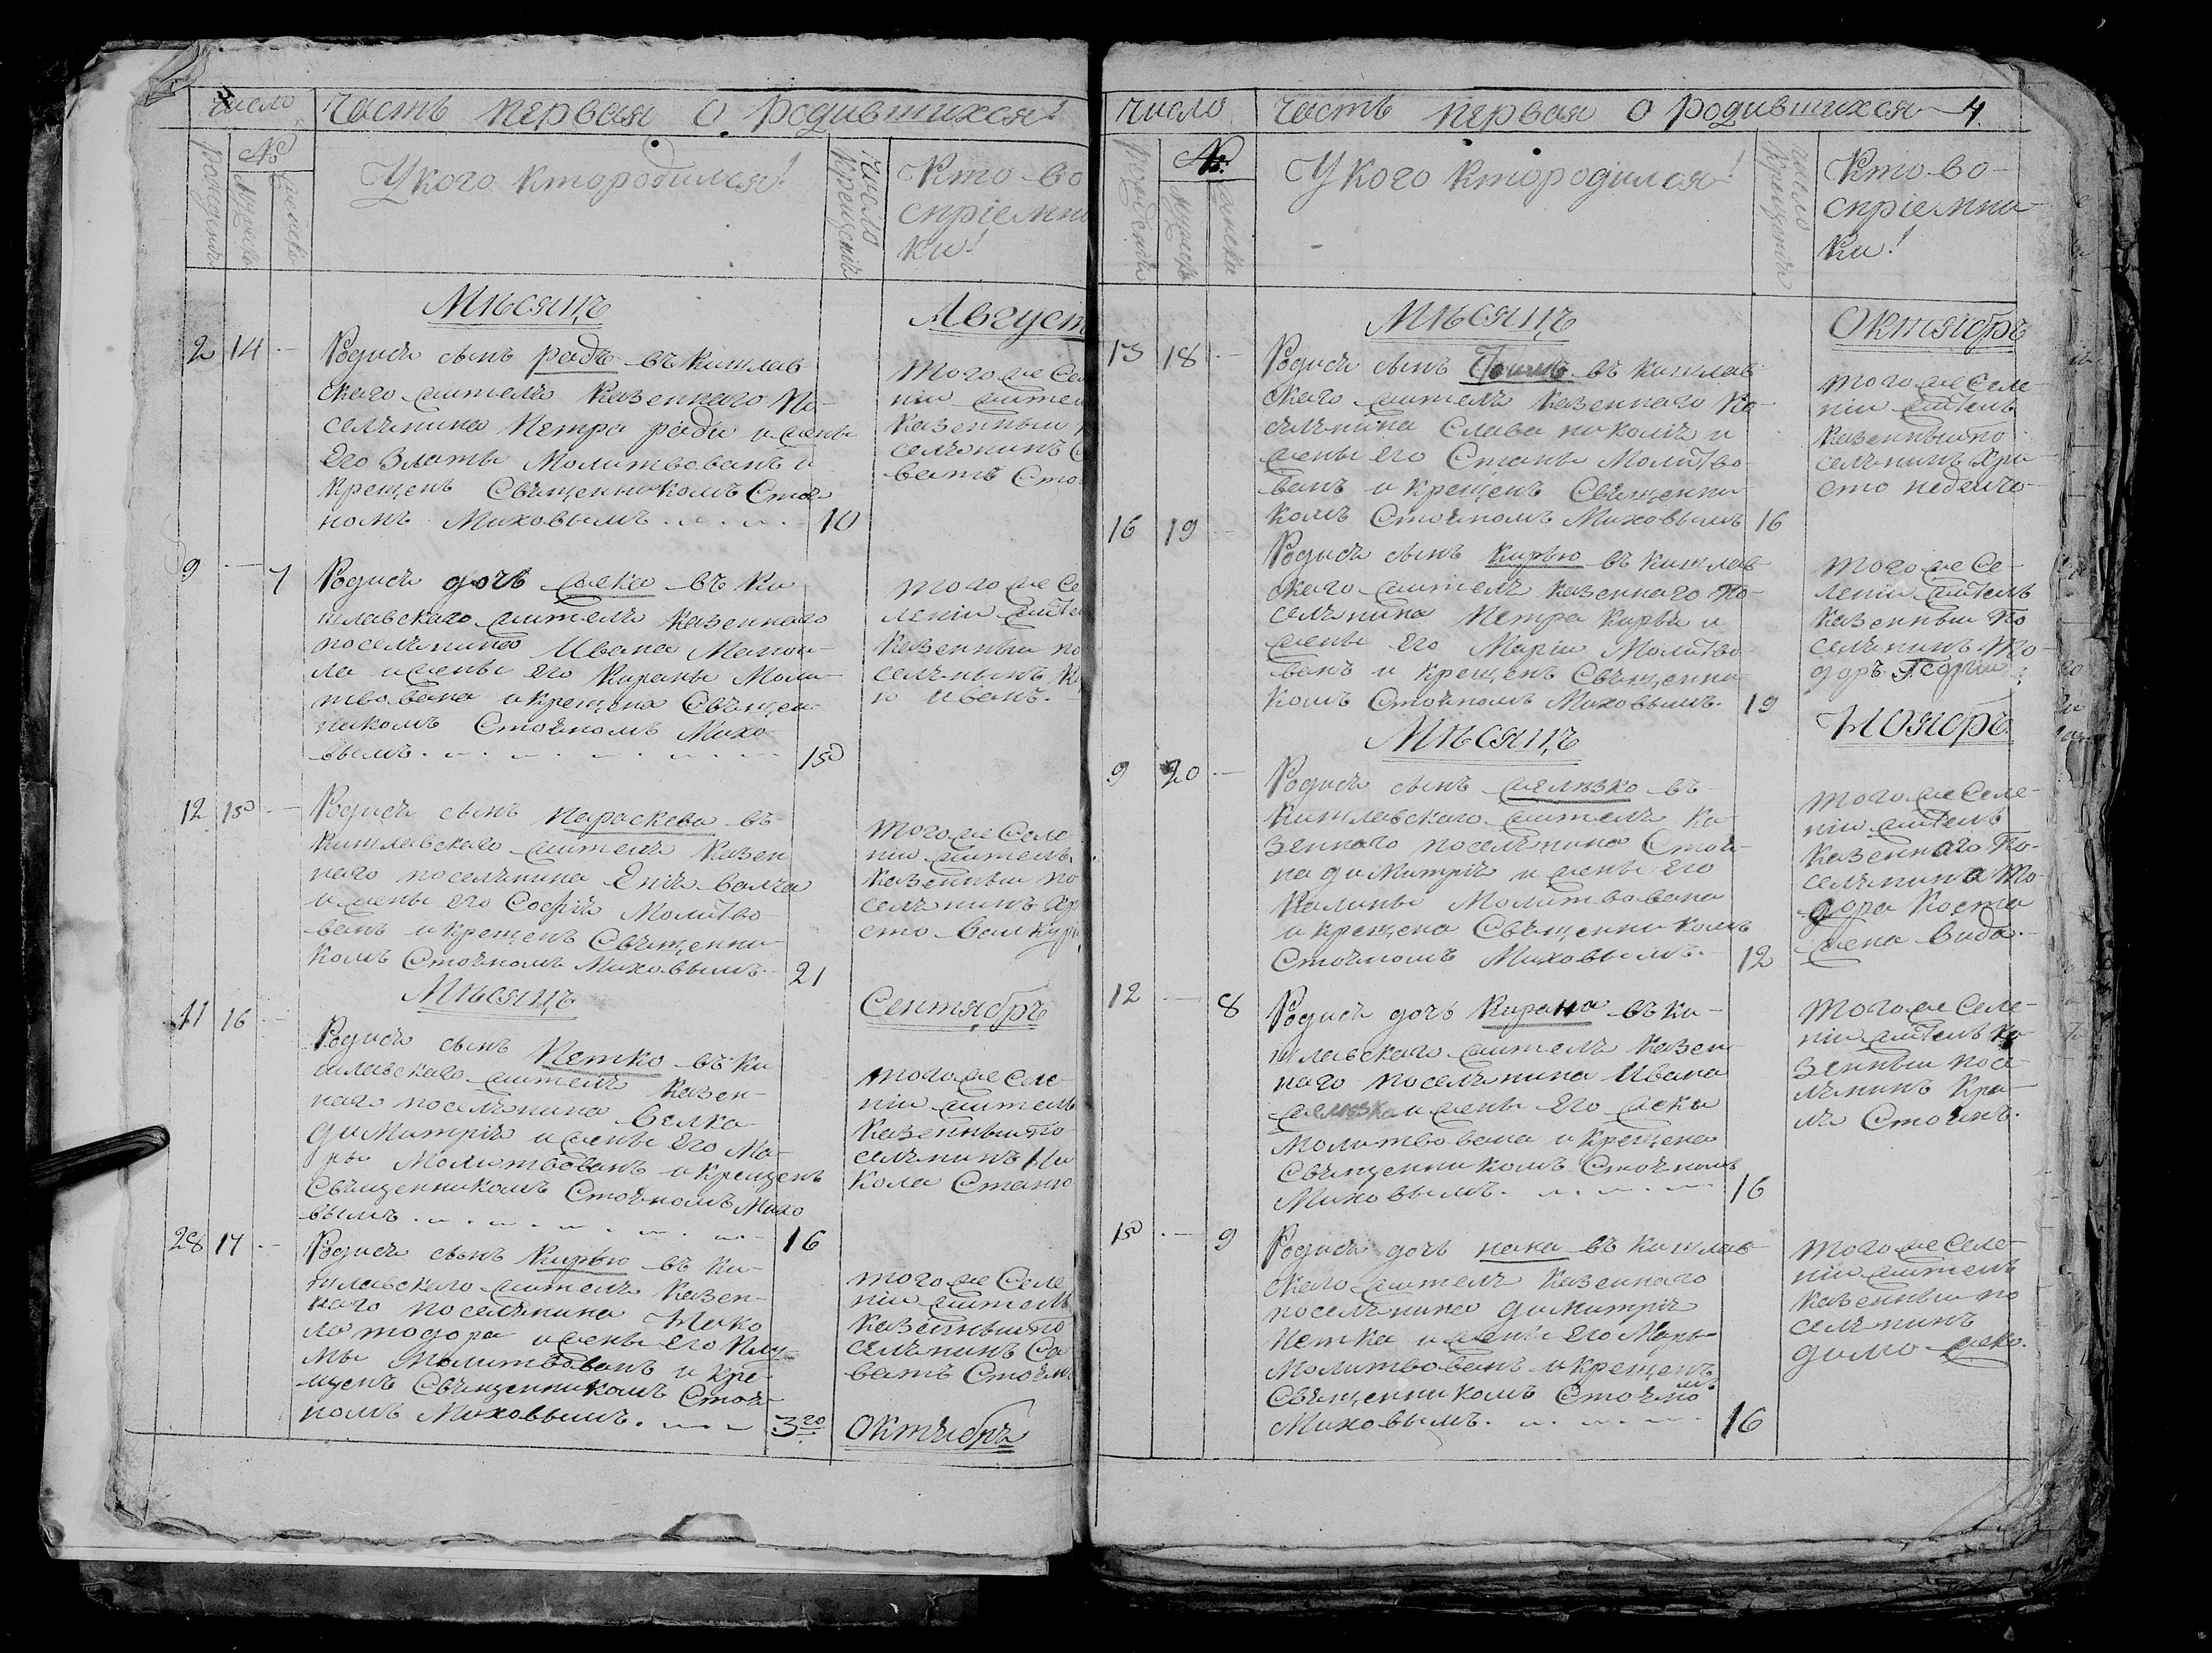 число
Часть первая О родившихся
№
рождения
мужеска
женска
У кого кто родился!
число крещения
Кто во
спріемни
ки!
Мѣсяцъ
Август
2 14 -
Родися сынъ радъ въ кишлав
скаго жителя казеннаго по-
селянина Петра ради и жены
его Златы Молитвованъ и
крещенъ Священникомъ Стоя
номъ Миховымъ 10
того же Се
ніи жител
казенный
селянинъ
ватъ Сто
9 - 7
Родися дочь жека въ ки
шлавскаго жителя казеннаго
поселянина Ивана Манои-
ла и жены его Кираны Моли-
твована и крещена Священ-
никомъ Стояномъ Михо
вымъ 15
того же Се
леніи жите
казенный по
селянинъ К
ю Иванъ.
12 15 -
Родися сынъ Параскева въ
кишлавскаго жителя казен
наго поселянина Енія Валча
и жены его Софія Молитво-
ванъ и крещенъ Священни
комъ Стояномъ Миховымъ. 21
того же Селе
ніи жителъ
казенный по
селянинъ Хр
сто Валкури
Мѣсяцъ
Сентябръ
11 16 -
Родися сынъ Петко въ ки
шлавскаго жителя казен-
наго поселянина Велка
димитрія и жены его Ма-
ры Молитвованъ и крещенъ
Священникомъ Стояномъ Михо
вымъ 16
того же Селе-
ніи житель
казенный по
селянинъ Ни
кола Станю
28 17 -
Родися сынъ Кирью въ ки-
шлавскаго жителя казен-
наго поселянина Нико
ла тодора и жены его
мы Молитвованъ и кре-
щенъ Священникомъ Стоя
номъ Миховымъ. 3
того же Селе
ніи житель
казенный по
селянинъ Са
ватъ Стоян
Октябръ
число
Часть первая О родившихся 4.
№
рожденія
мужеск
женска
У кого кто родился!
число крещенія
Кто во-
спріемни-
ки!
Мѣсяцъ
Октябръ
13 18 -
Родися сынъ въ кишлав-
скаго жителя казеннаго по-
селянина Слава николя и
жены его Станы Молитво-
ванъ и крещенъ Священни-
комъ Стояномъ Миховымъ 16
того же Селе-
ніи житель
казенный по
селянинъ Хри-
сто недялчо-
16 19 -
Родися сынъ кирью въ кишлав-
скаго жителя казеннаго по-
селянина Петра Киръя и
жены его Маріи Молитво-
ванъ и крещенъ Священни-
комъ Стояномъ Миховымъ. 19
того же Се-
леніи житель
казенный по
селянинъ то-
доръ Георгіи
Мѣсяцъ
Ноябръ
9 20 -
Родися сынъ желязко въ
кишлавскаго жителя ка-
зеннаго поселянина Стоя-
на димитрія и жены его
Калины Молитвована
и крещена Священникомъ
Стояномъ Миховымъ. 12
того же Селе-
ніи житель
казеннаго по-
селянина То-
дора Коста
жена Вида.
12 - 8
Родися дочь Кирана въ ки-
шлавскаго жителя казен-
наго поселянина Ивана
желязка и жены его жека
Молитвована и крещена
Священникомъ Стояномъ
Миховымъ. 16
того же Селе-
ніи житель ка-
зенный посе-
лянинъ Кра-
лю Стоянъ.
15 - 9
Родися дочь нана въ кишлав-
скаго жителя казеннаго
поселянина димитрія
Петка и жены его Мары
Молитвованъ и крещенъ
Священникомъ Стояномъ
Миховымъ. 16
того же Селе-
ніи житель
казенный по
селянинъ
димо жеко.